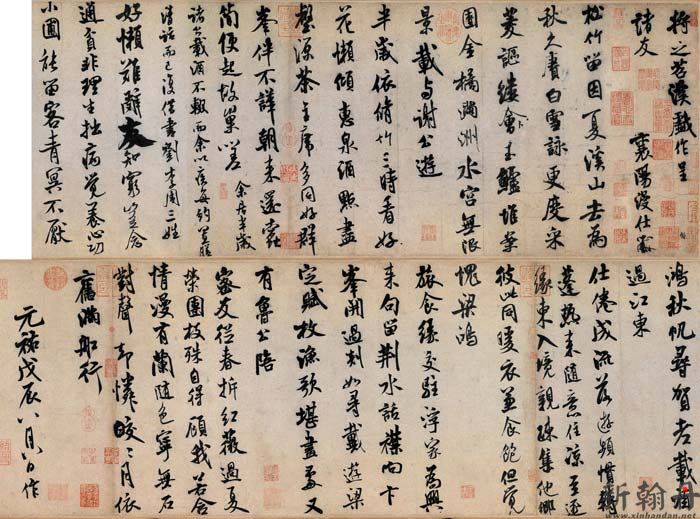 將之苕溪戲作呈
諸友
襄陽漫仕黻
松竹留因夏溪山去為
秋久賡白雪詠更度采
菱謳縷會玉鱸堆案
團金橘滿洲水宮無限
景載與謝公遊
半歲依脩竹三時看好
花懶傾惠泉酒點盡
壑源茶主席多同好群
峯伴不譁朝來還蠹
簡便起故巢嗟 余居半歲
諸公載酒不輟而余以疾每約置膳
清話而已復借書劉李周三姓
好懶難辭友知窮豈念
通貧非理生拙病覺養心功
小圃能留客青冥不厭
鴻秋帆尋賀老載酒
過江東
仕倦成流落遊頻慣轉
蓬熱來隨意住涼至逐
緣東入境親疎集他鄉
彼此同暖衣兼食飽但覺
愧梁鴻
旅食緣交駐浮家為興
來句留荆水話襟向卞
峯開過剡如尋戴遊梁
定賦枚漁歌堪畫處又
有魯公陪
密友從春拆紅薇過夏
榮團枝殊自得顧我若含
情漫有蘭隨色寧無石
對聲却憐皎皎月依
舊滿船行
元祐戊辰八月八日作
新翰
www.xinhandan.net